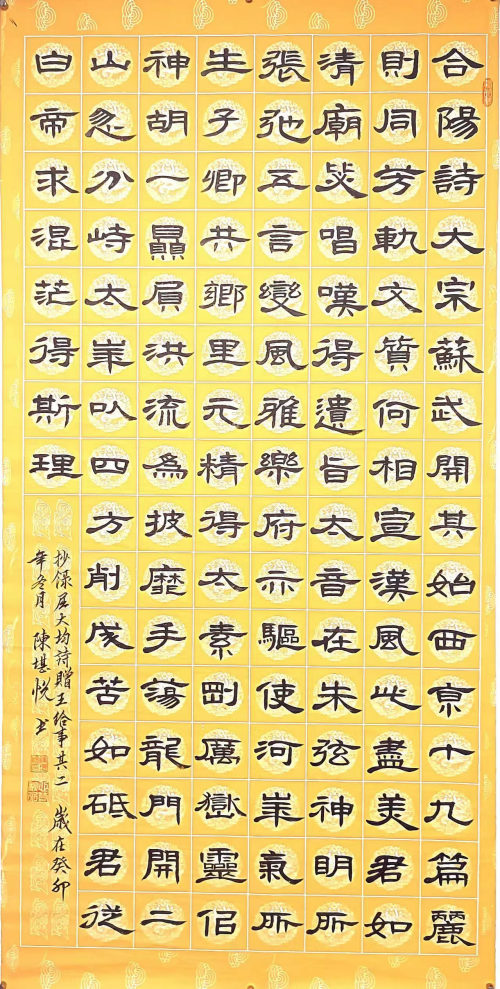 合陽詩大宗蘇武開其始西京十九篇麗
則同芳軌文質何相宣漢風此盡美君如
清廟瑟唱嘆得遺旨太音在朱弦神明所
張弛五言變風雅樂府亦驅使河崋氣所
生子卿共鄉里元精得太素剛厲嶽靈侶
神胡一贔屓洪流為披靡手蕩龍門開二
山忽分峙太崋以四方削成苦如砥君從
白帝求混茫得斯理
抄錄屈大均詩贈王給事其二 歲在癸卯
年冬月 陳堪悅書